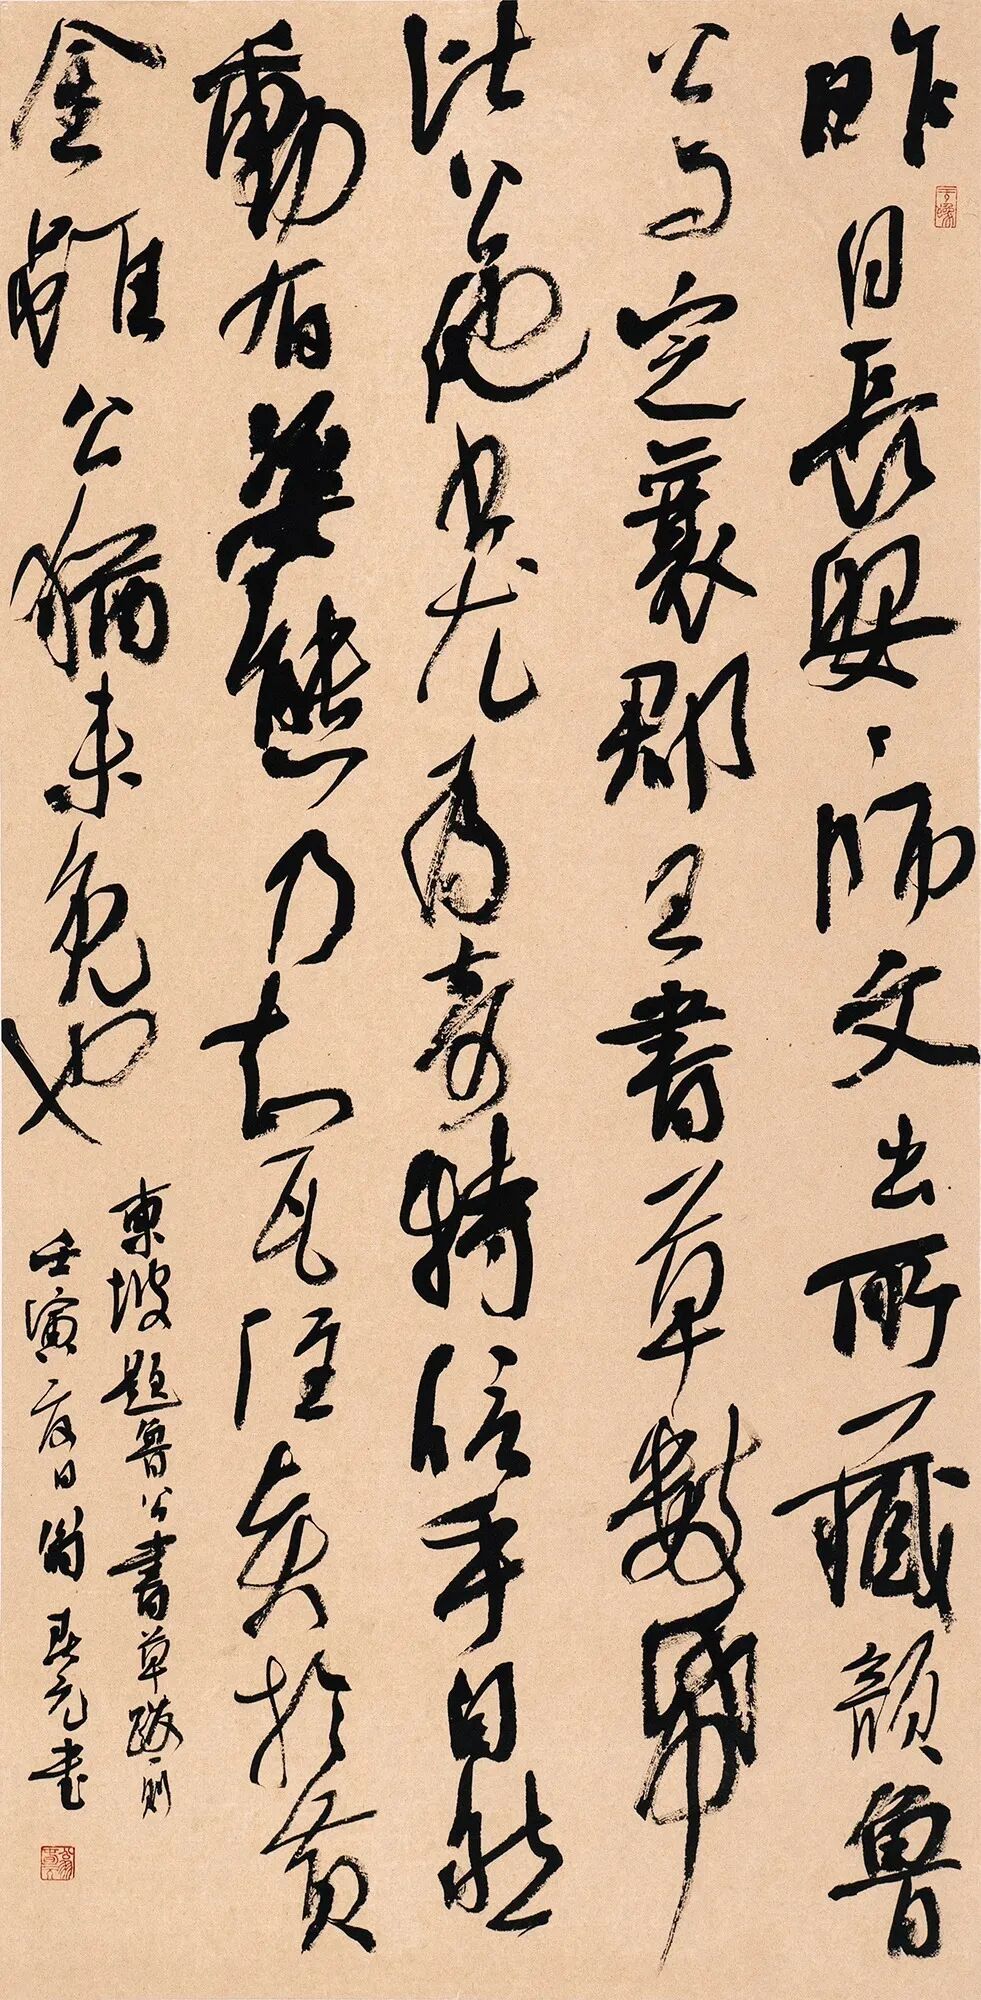 昨日長安安師文出所藏顔魯
公與定襄郡王書草數紙
比公他書尤為奇特信手自然
動有姿態乃知瓦注賢於黃
金雖公猶未免也
東坡題魯公書草跋一則
壬寅夏日 元書